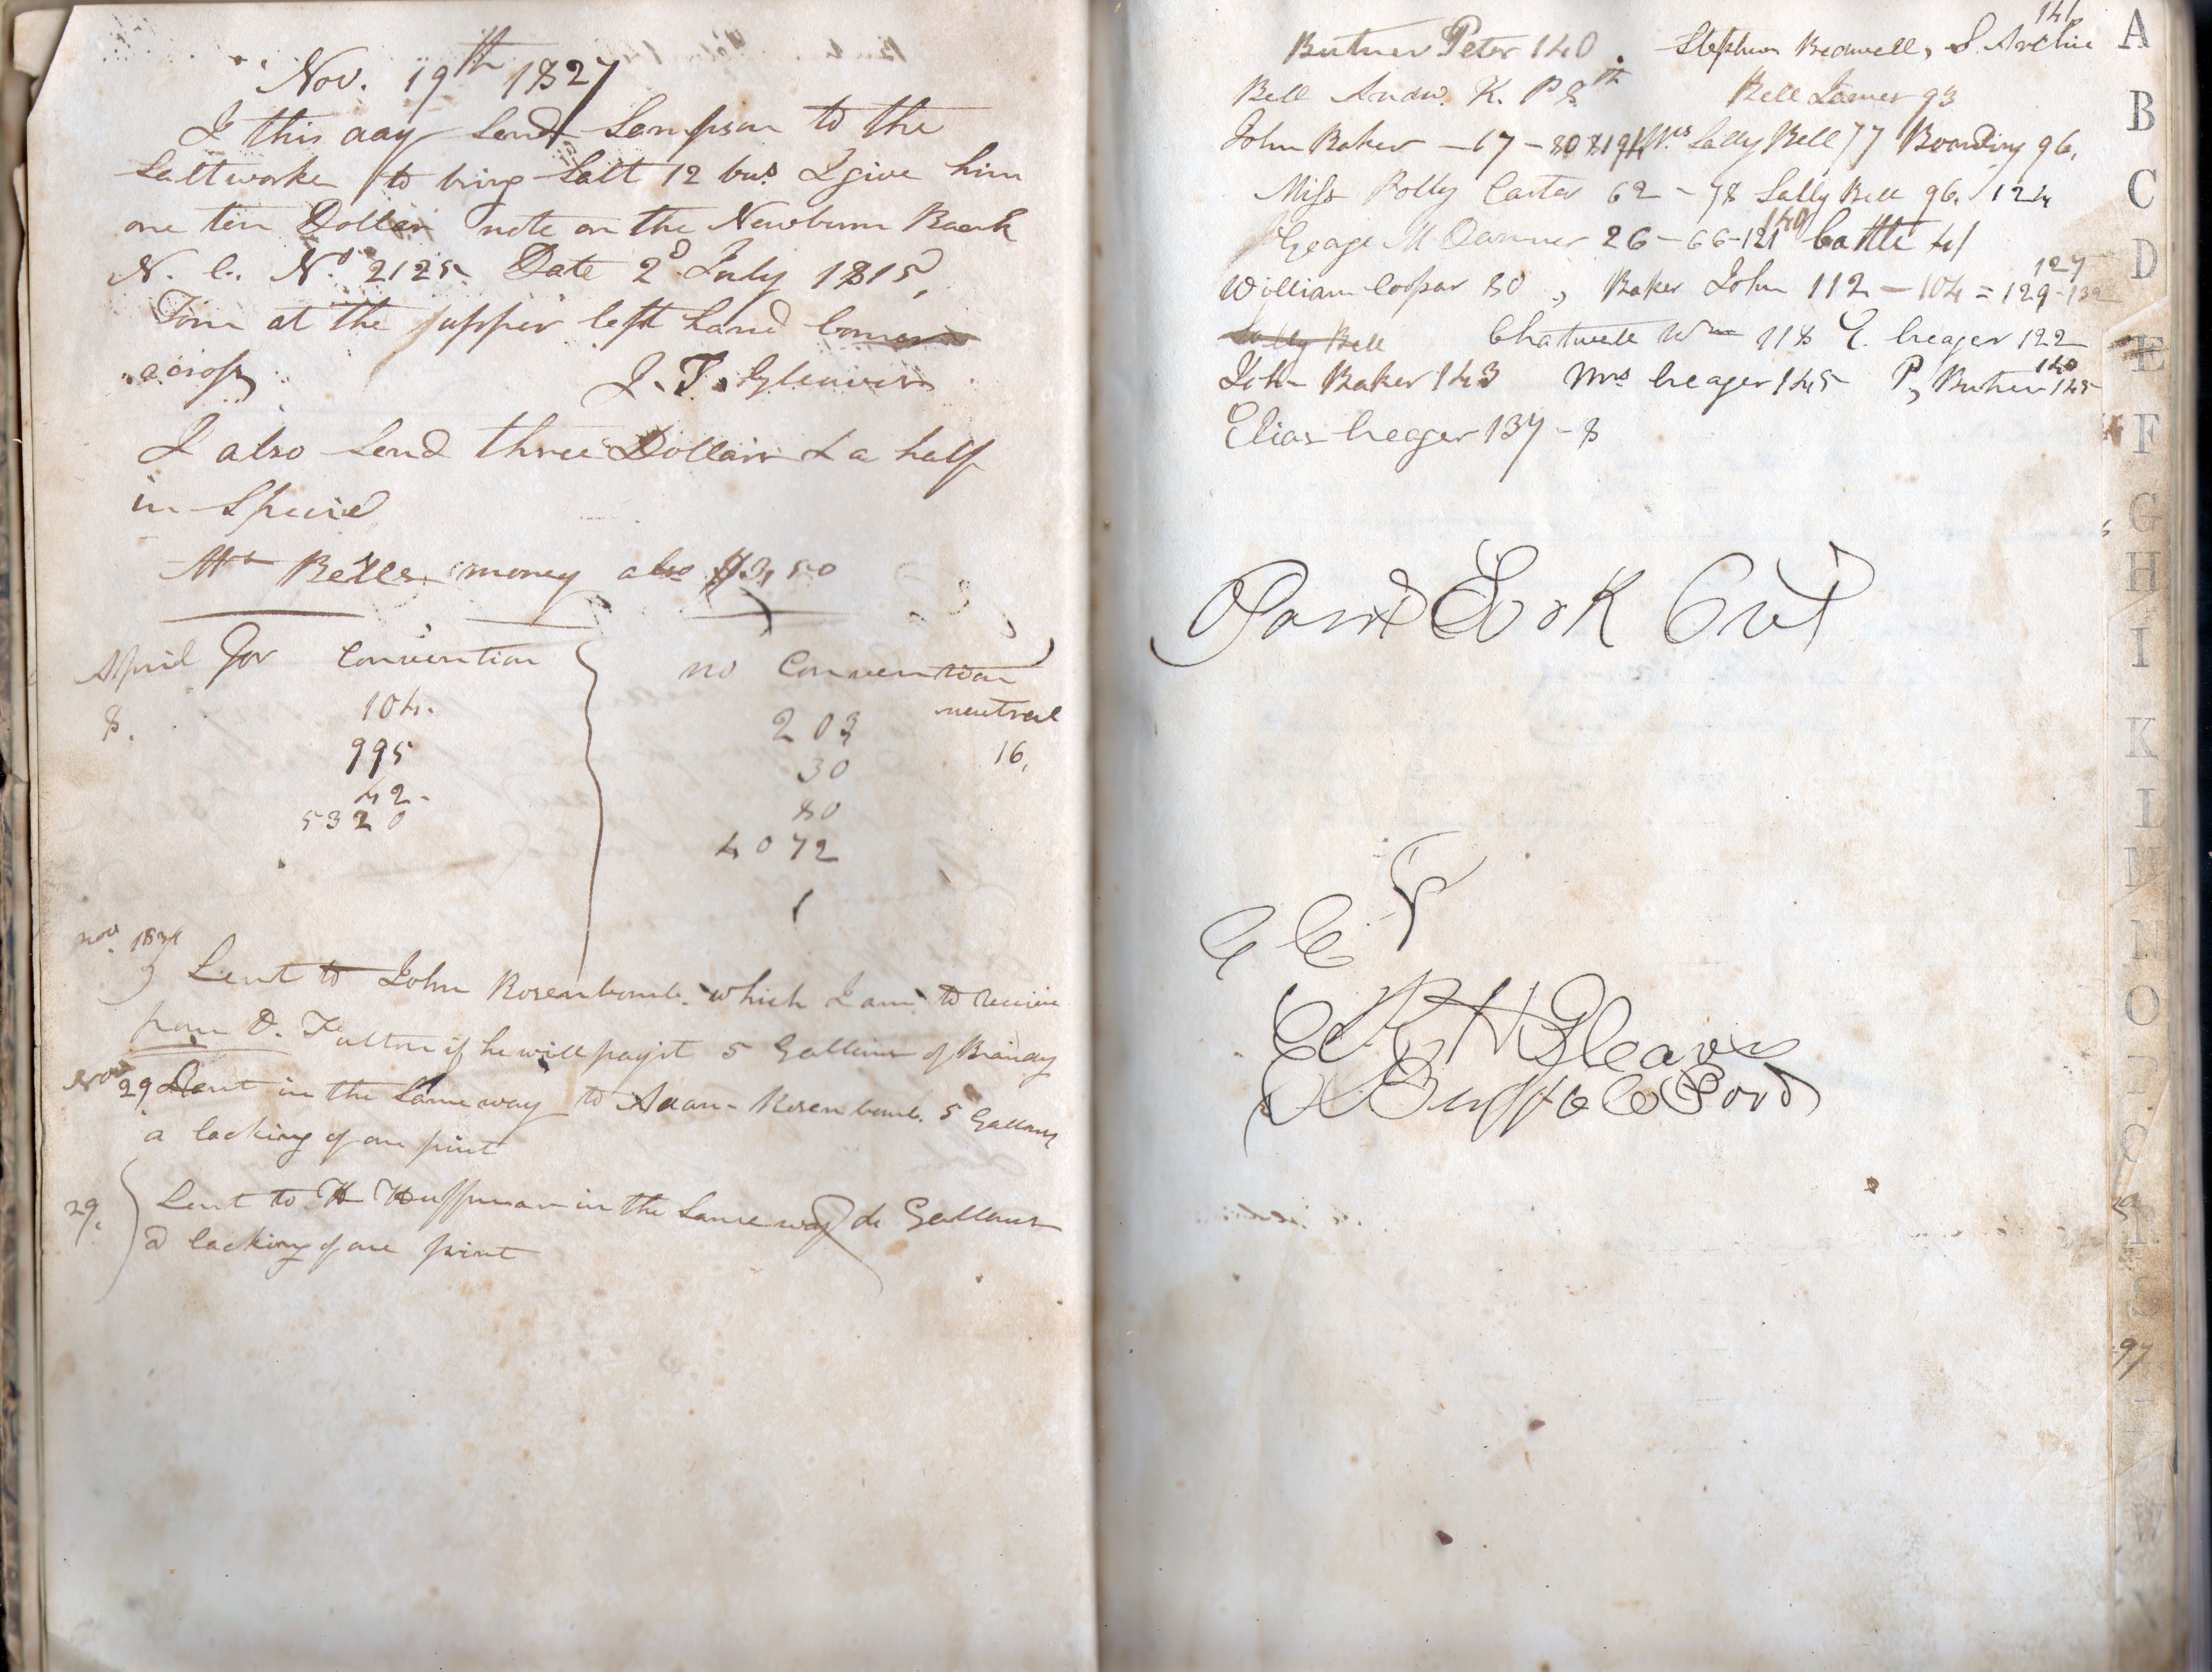 Nov. 19th 1827
I this day send Sampson to the
Saltworks to bring Salt 12 bus. I give him
one ten Dollar note on the Newburn Bank
N. C. No 2125 Date 2d July 1815,
Torn at the upper left hand corner
across
J. T. Gleaves
I also send three Dollars & a half
in Specie
Mrs Bells money also $3,50
April for Convention
no Convention
neutral
8.
104.
995
42-
5320
203
30
80
4072
1
16,
Nov. 1834
Lent to John Rosenbaum. which I am to receive
from D. Fulton if he will pay it 5 Gallons of Brandy
Nov 29 Lent in the Same way to Adam Rosenbaum. 5 Gallons
a lacking of one pint
29. Lent to H Huffman in the Same way do Gallons
a lacking of one pint
Butner Peter 140. Stephen Bedwell, S. Archie 141
Bell Andw. K. P 8th Bell James 93
John Baker - 17 - 80 Mrs Sally Bell 77 Boarding 96,
Miss Polly Carter 62 - 78 Sally Bell 96, 124
George M Danner 26 - 66 - 121 140 Cattle 41
William Cooper 80, Baker John 112 - 104 = 129 - 132
127
Sally Bell Chatwell Wm 118 E. Creager 122
John Baker 143 Mrs Creager 145 P, Butner 145
140
Elias Creager 137 - 8
G C
R H Gleaves
A
B
C
D
E
F
G
H
I
K
L
M
N
O
P
Q
R
S
97
W